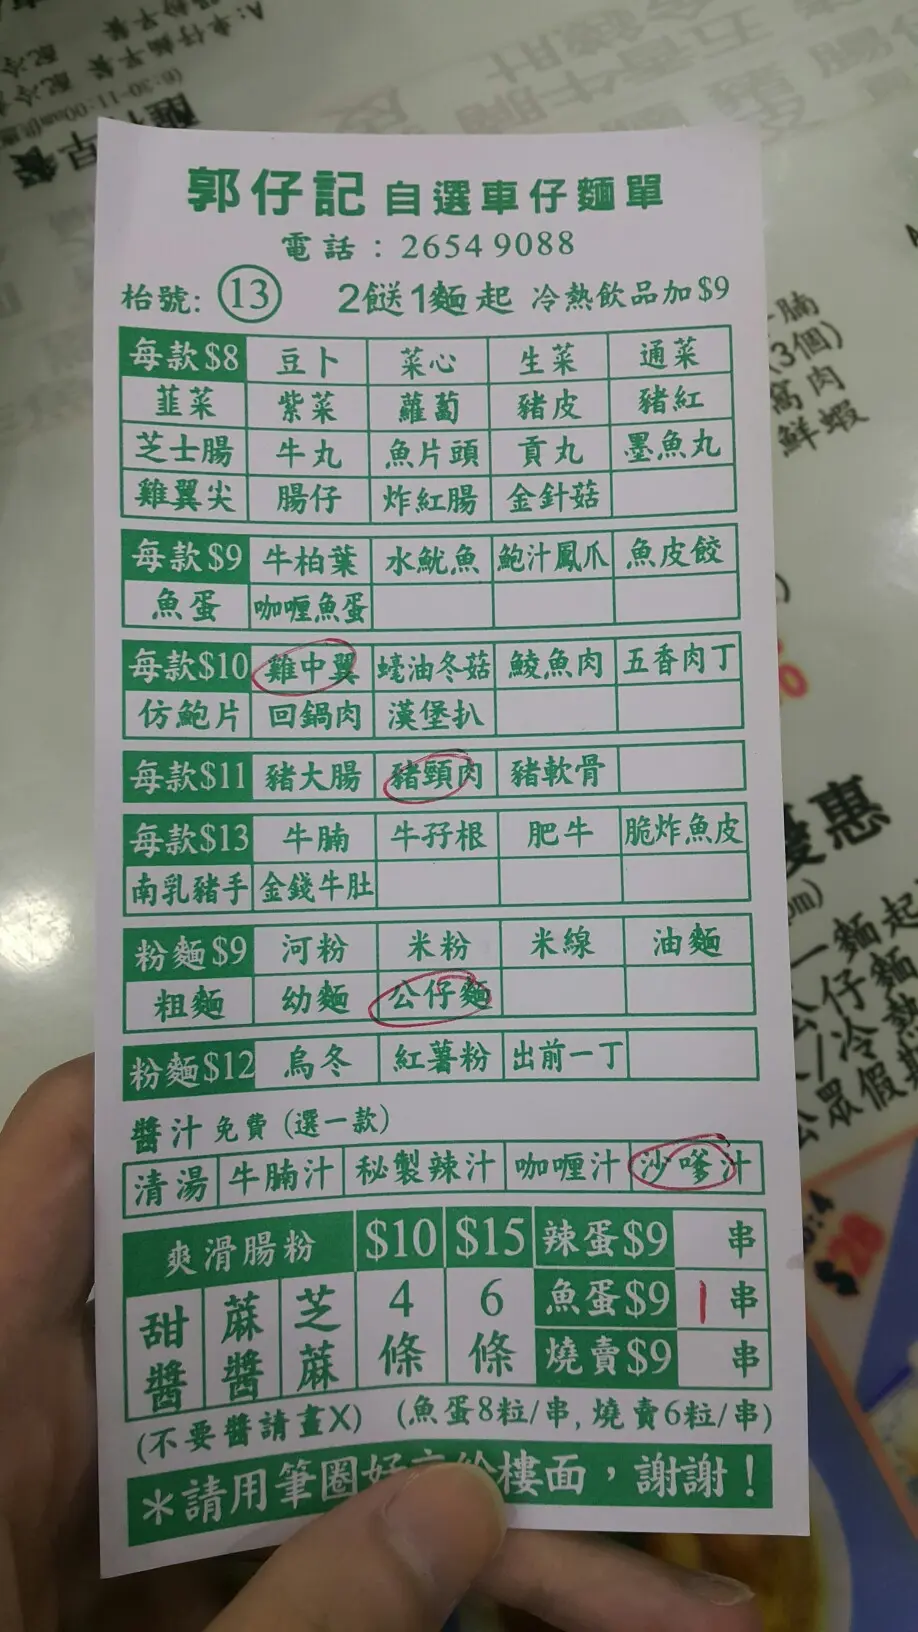 郭仔記 自選車仔麵單
電話：2654 9088
枱號: 13 2餸1麵起 冷熱飲品加$9
每款$8 豆卜 菜心 生菜 通菜
韮菜 紫菜 蘿蔔 豬皮 豬紅
芝士腸 牛丸 魚片頭 貢丸 墨魚丸
雞翼尖 腸仔 炸紅腸 金針菇
每款$9 牛柏葉 水魷魚 鮑汁鳳爪 魚皮餃
魚蛋 咖喱魚蛋
每款$10 雞中翼 蠔油冬菇 鯪魚肉 五香肉丁
仿鮑片 回鍋肉 漢堡扒
每款$11 豬大腸 豬頸肉 豬軟骨
每款$13 牛腩 牛孖根 肥牛 脆炸魚皮
南乳豬手 金錢牛肚
粉麵$9 河粉 米粉 米線 油麵
粗麵 幼麵 公仔麵
粉麵$12 烏冬 紅薯粉 出前一丁
醬汁免費(選一款)
清湯 牛腩汁 秘製辣汁 咖喱汁 沙嗲汁
爽滑腸粉 $10 $15 辣蛋$9 串
甜醬 蔴醬 芝蔴 4條 6條 魚蛋$9 1串
燒賣$9 串
(不要醬請畫X) (魚蛋8粒/串, 燒賣6粒/串)
＊請用筆圈好 樓面，謝謝！
早餐
(3個)
窩肉
鮮蝦
優惠
公仔麵
/冷熱
公眾假期